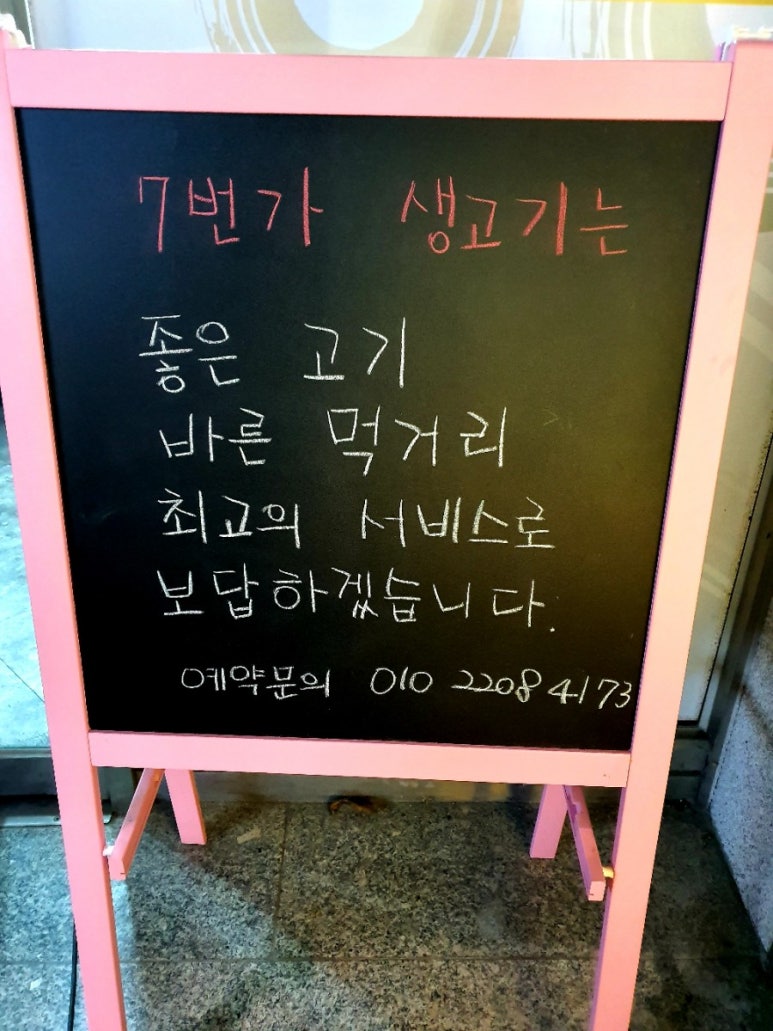 7번가 생고기는
좋은 고기
바른 먹거리
최고의 서비스로
보답하겠습니다.
예약문의 010 2208 4173